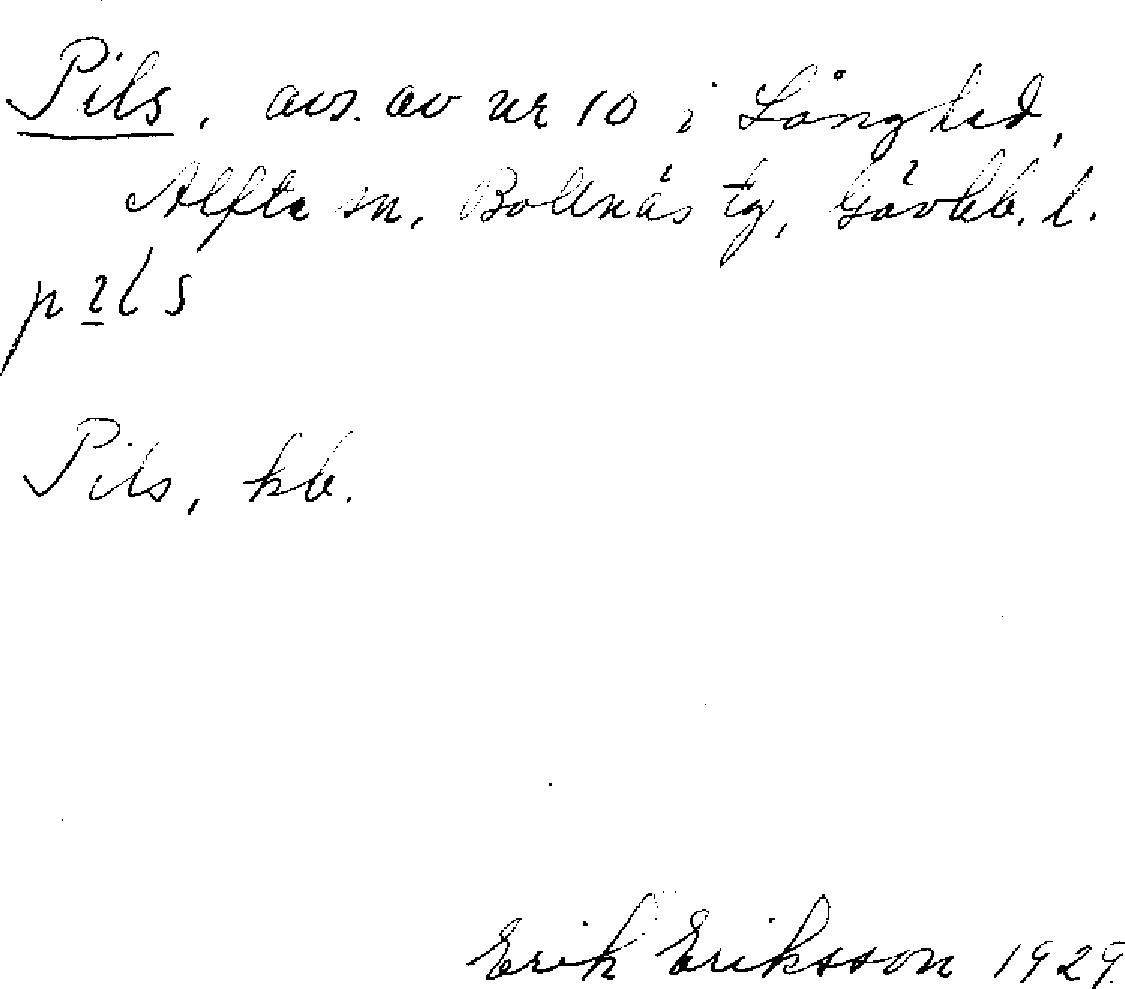 Pils, avs. av nr 10 i Långhed,
Alfta sn, Bollnäs tg, Gävleb. l.
pıls
Pils, kb.
Erik Eriksson 1929.